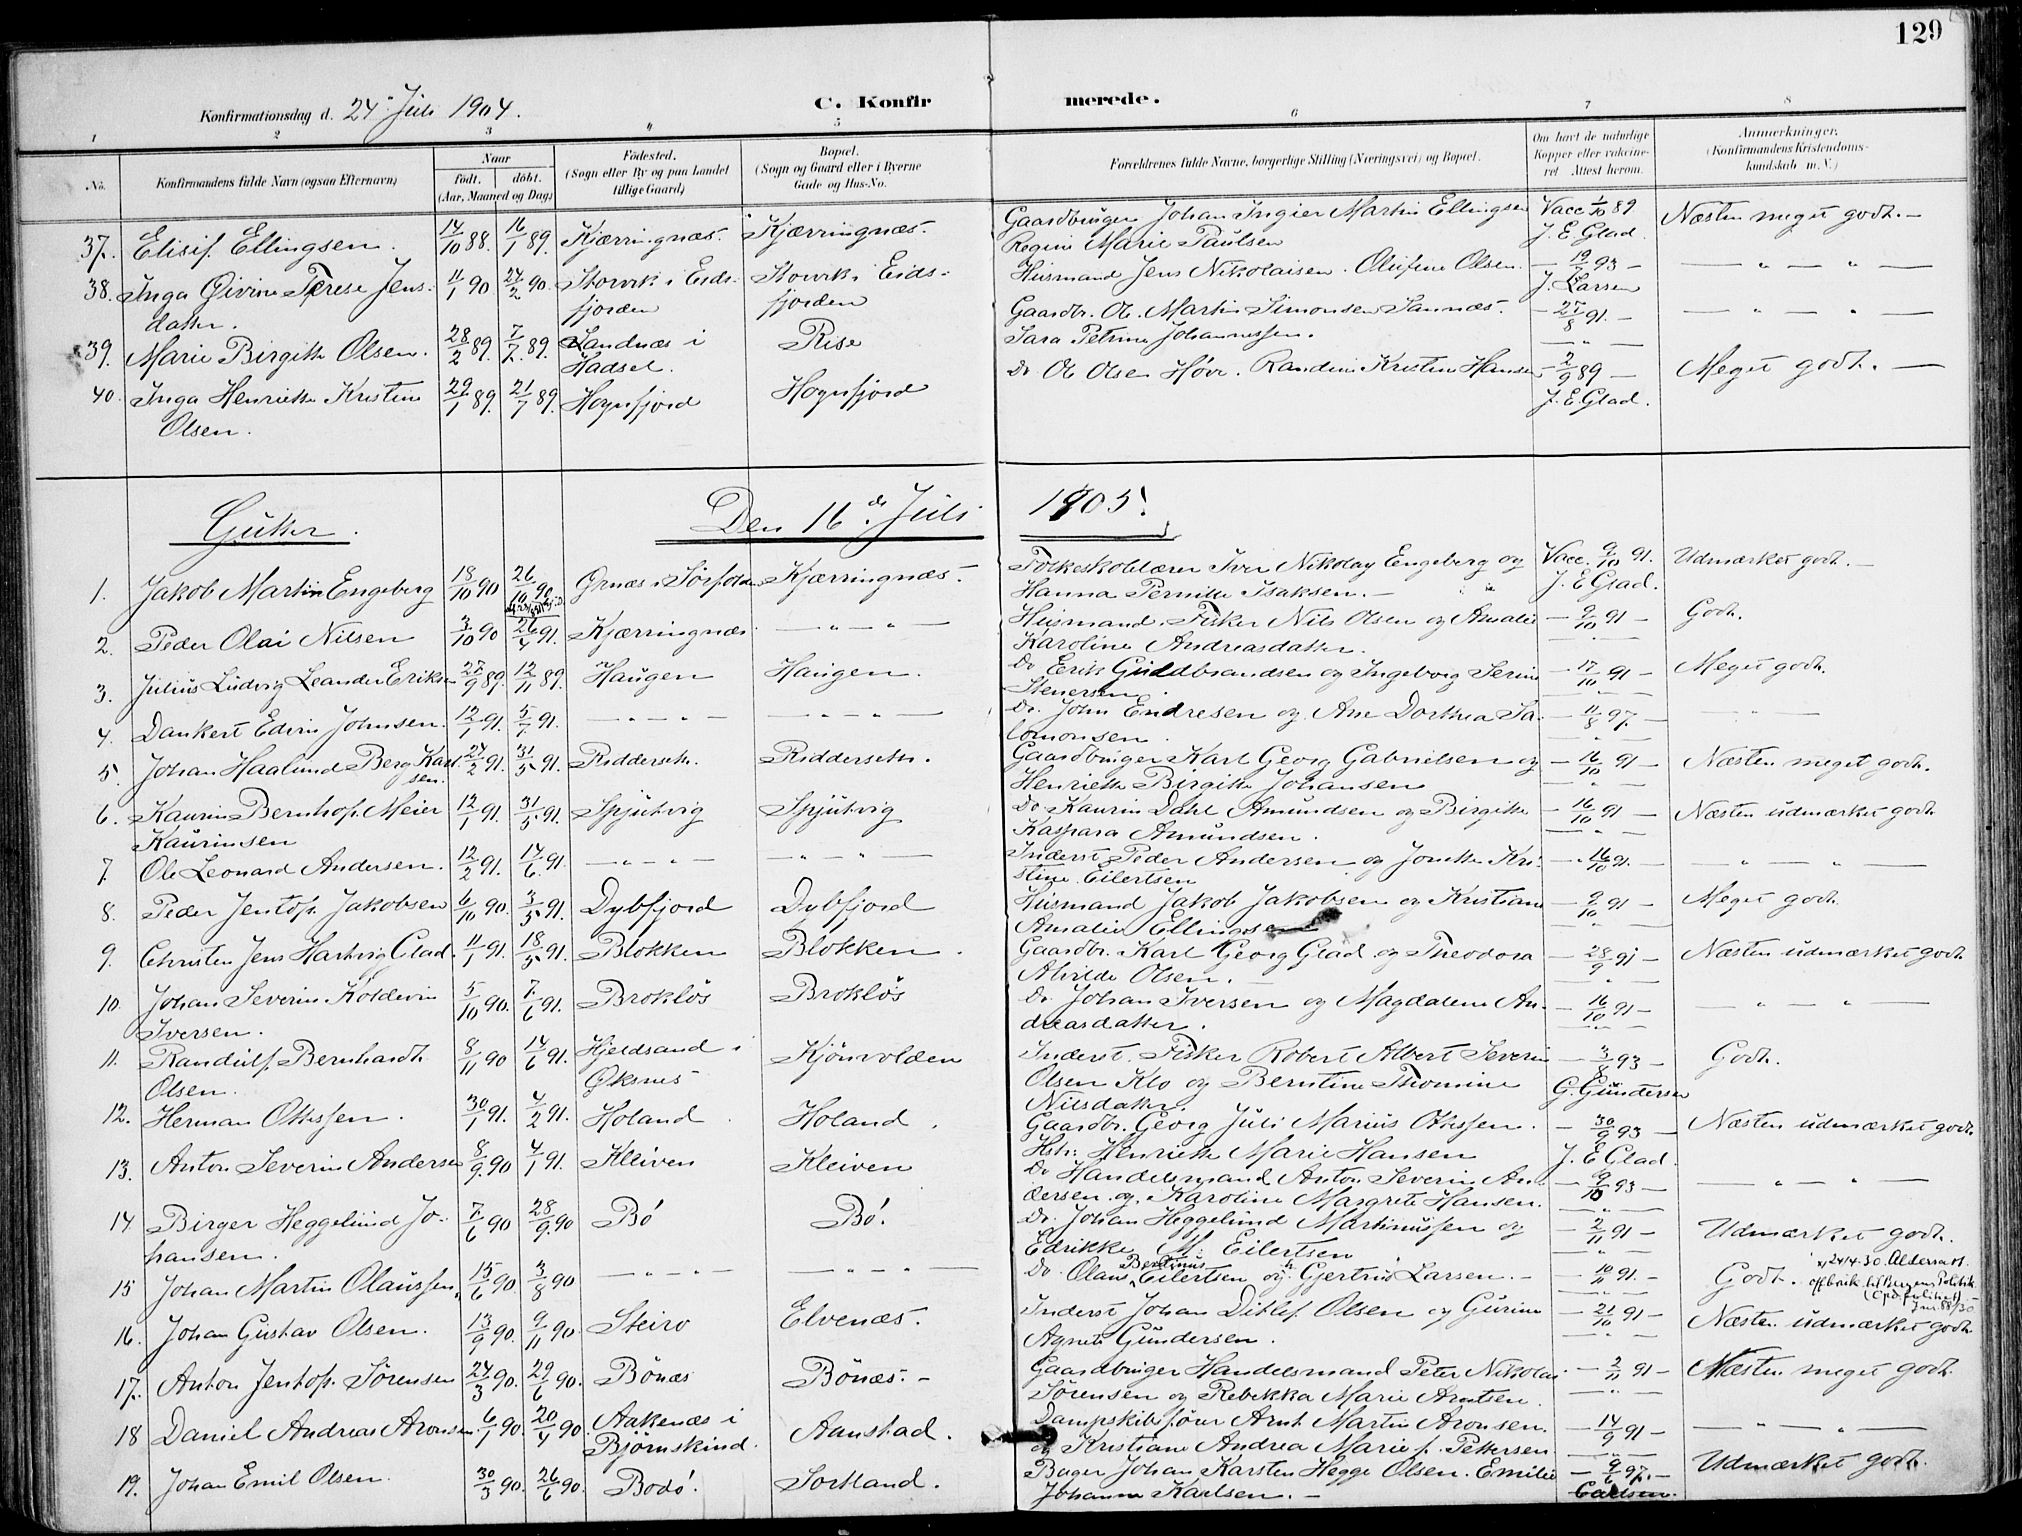 129
Konfirmationsdag d. 24de Juli 1904.
C. Konfirmerede.
1 2 3 4 5 6 7 8
No.
Konfirmandens fulde Navn (ogsaa Efternavn)
Naar
født. døbt.
(Aar, Maaned og Dag)
Fødested.
(Sogn eller By og paa Landet
tillige Gaard)
Bopæl.
(Sogn og Gaard eller i Byerne
Gade og Hus-No.
Forældrenes fulde Navne, borgerlige Stilling (Næringsvei) og Bopæl.
Om havt de naturlige
Kopper eller vakcine-
ret Attest herom.
Anmærkninger.
(Konfirmandens Kristendoms-
kundskab m. V.)
37. Elisif Ellingsen. 14/10 88. 16/1 89. Kjærringnæs. Kjærringnæs. Gaardbruger Johan Ingier Martin Ellingsen Vacc 1/10 89 Næsten meget godt. —
Regine Marie Paulsen J. E. Glad.
38. Inga Øivine Terese Jens- 11/1 90 27/2 90. Storvik i Eids- Storvik i Eids- Husmand Jens Nikolaisen. Olufine Olsen. — 19/7 93 — — " — " —
datter. fjorden fjorden J. Larsen
39. Marie Birgitte Olsen. 28/2 89. 7/7 89. Sandnæs i Rise Gaardbr. Ol. Martin Simonsen Sannæs. — 27/8 91. — — " — " —
Hadsel. Sara Petrine Johannessen. — " —
40. Inga Henriette Kristine 29/1 89. 21/7 89. Hognfjord Hognfjord Do Ol Olsen Høve. Randine Kristine Hansen — 2/9 89 — Meget godt. —
Olsen. J. E. Glad.
Gutter. Den 16de Juli 1905!
1. Jakob Martin Engeberg 18/10 90 26/10 90 Ørnæs i Sørfolden Kjærringnæs. Folkeskolelærer Iver Nikolay Engeberg og Vacc. 9/10 91. Udmærket godt. —
Hanna Pernille Isaksen. — J. E. Glad.
2. Peder Olai Nilsen 3/10 90 26/4 91. Kjærringnæs — " — " — Husmand Fisker Nils Olsen og Amalie — 9/10 91 — Godt.
Karoline Andreasdatter. — " —
3. Julius Ludvig Leander Eriksen 27/9 89. 12/11 89. Haugen Haugen. Do Erik Guldbrandsen og Ingeborg Serine — 17/10 91 — Meget godt.
Stenersen. — " —
4. Dankert Edvin Johnsen. 12/1 91. 5/7 91. — " — " — — " — " — Do. John Endresen og Ane Dorthea Sa- — 11/8 97. — — " —
lomonsen. — " —
5. Johan Haalund Berg Karl- 24/2 91. 31/5 91. Ridderseth. Ridderseth. Gaardbruger Karl Georg Gabrielsen og — 16/10 91 — Næsten meget godt.
sen. Henriette Birgitte Johansen — " —
6. Kaurin Bernhof. Meier 12/1 91. 31/5 91. Spjutvig Spjutvig Do Kaurin Dahl Amundsen og Birgitte — 16/10 91 — Næsten udmærket godt
Kaurinsen Kaspara Amundsen. — " —
7. Ole Leonard Andersen. 12/2 91. 14/6 91. — " — " — — " — " — Inderst Peder Andersen og Jonette Kri- — 16/10 91. — — " — " —
stine Eilertsen
8. Peder Jentof. Jakobsen 6/10 90. 3/5 91. Dybfjord Dybfjord Husmand Jakob Jakobsen og Kristiane — 9/10 91 — Meget godt.
Amalie Ellingsen — " —
9. Christen Jens Hartvig Glad. 11/1 91. 18/5 91. Blokken Blokken. Gaardbr. Karl Georg Glad og Theodora — 28/9 91 — Næsten udmærket godt
Alvilde Olsen. — — " —
10. Johan Severin Koldevin 5/10 90. 7/6 91. Brokløs Brokløs Do Johan Iversen og Magdalene An- — 16/10 91 — — " — " —
Iversen. dreasdatter. — " —
11. Randulf. Bernhardt 8/11 90 14/6 91. Hjeldsand i Kjørvolden Inderst. Fisker Robert Albert Severin — 3/8 93 — Godt.
Olsen. Øksnes Olsen Klo og Berntine Thomine G. Gundersen
Nilsdatter.
12. Herman Ottesen. 30/1 91. 4/2 91. Holand Holand. Gaardbr. Georg Juli Marius Ottesen. — 30/9 93 — Næsten udmærket godt.
Hstr. Henriette Marie Hansen J. E. Glad.
13. Anton Severin Andersen 8/9 90 4/1 91. Kleiven Kleiven Do Handelsmand Anton Severin An- — 9/10 93 — — " — " —
dersen og Karoline Margrete Hansen. — " —
14 Birger Heggelund Jo- 7/6 90 28/9 90 Bø Bø. Do. Johan Heggelund Martinussen og — 2/11 91 — Udmærket godt.
hansen. Edrikke M. Eilertsen — " —
15 Johan Martin Olaussen, 15/6 90. 3/8 90 — " — " — — " — " — Do Olaus Bertinus Eilertsen og Gjertrud Larsen. — — 10/11 91. — Godt.
x) 24/4-30. Aldersatt.
16. Johan Gustav Olsen. 13/9 90. 9/11 90. Steiro Elvenæs. Inderst Johan Ditlef Olsen og Gurine — 21/10 91 — Næsten udmærket godt
Agnete Gundersen. — " —
17. Anton Jentof. Sørensen 24/3 90. 29/6 90. Bønæs Bønæs. — Gaardbruger Handelsmand Peter Nikolai — 2/11 91 — Næsten meget godt.
Sørensen og Rebekka Marie Arntsen. — " —
18 Daniel Andreas Aronsen. 6/1 90. 20/4 90. Aakenæs i Aanstad. Dampskibsfører Arnt Martin Aronsen. — 14/9 91 — — " — " —
Bjørnskind. og Kristiane Andrea Marie f. Pettersen — " —
19. Johan Emil Olsen. 30/3 90. 26/6 90. Bodø! Sortland. Bager Johan Karsten Hegge Olsen. Emilie — 9/6 97. — Udmærket godt.
Johanna Karlsen. — Carlsen.